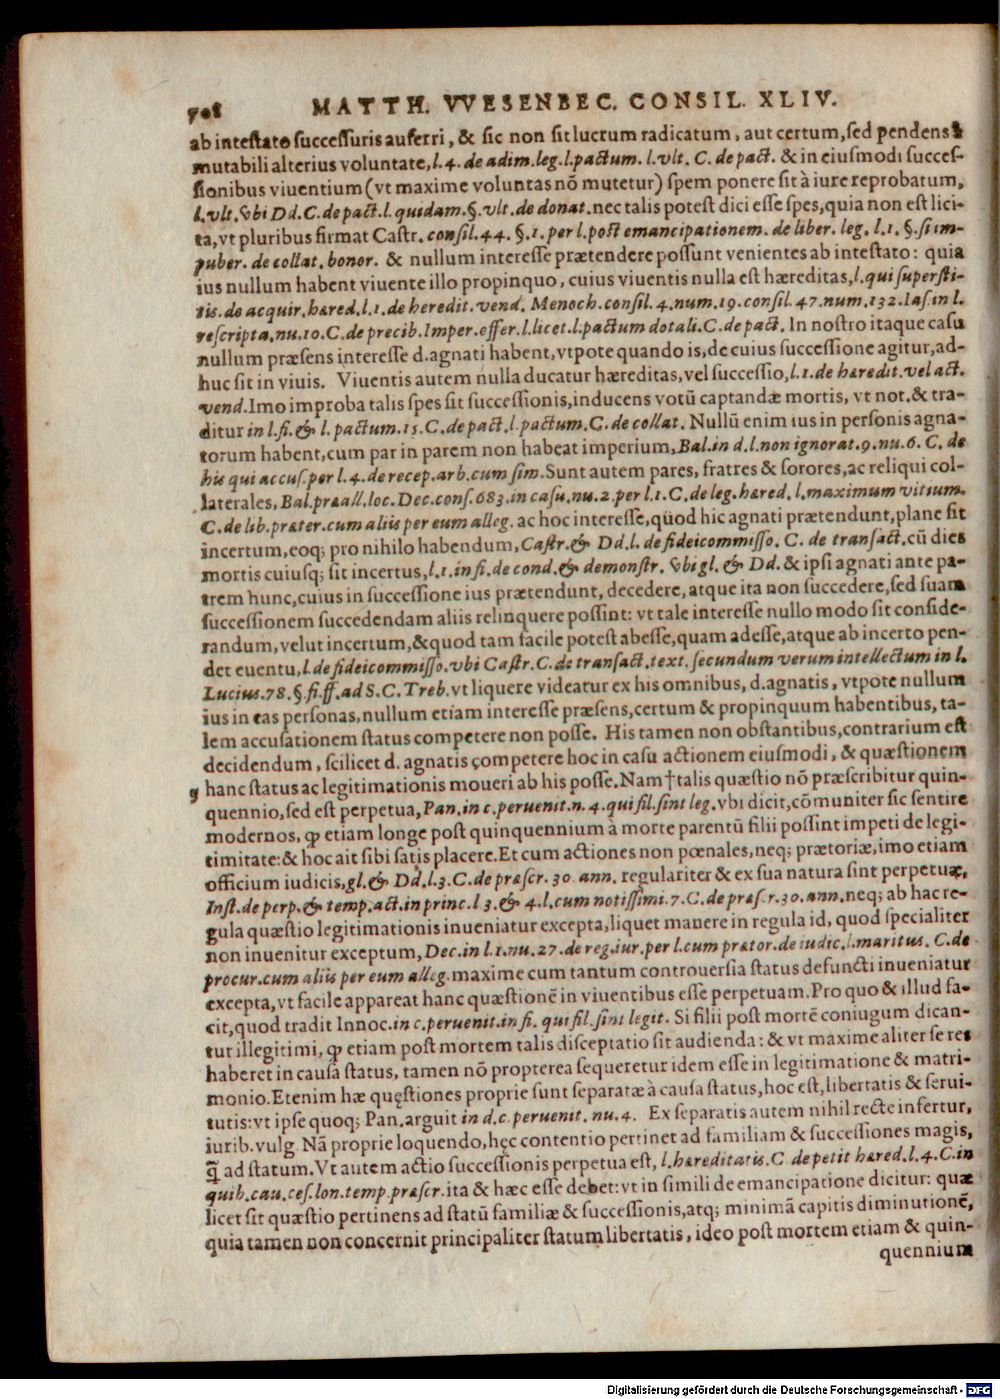 708 MATTH. VVESENBEC. CONSIL. XLIV.
ab intestato successuris auferri, & sic non sit lucrum radicatum, aut certum, sed pendens à
mutabili alterius voluntate, l. 4. de adim. leg. l. pactum. l. vlt. C. de pact. & in eiusmodi succes-
sionibus viuentium (vt maxime voluntas nō mutetur) spem ponere sit à iure reprobatum,
l. vlt. vbi Dd. C. de pact. l. quidam. §. vlt. de donat. nec talis potest dici esse spes, quia non est lici-
ta, vt pluribus firmat Castr. consil. 44. §. 1. per l. post emancipationem. de liber. leg. l. 1. §. si im-
puber. de collat. bonor. & nullum interesse prætendere possunt venientes ab intestato: quia
ius nullum habent viuente illo propinquo, cuius viuentis nulla est hæreditas, l. qui supersti-
tis. de acquir. hæred. l. 1. de heredit. vend. Menoch. consil. 4. num. 19. consil. 47. num. 132. Ias. in l.
rescripta. nu. 10. C. de precib. Imper. offer. l. licet. l. pactum dotali. C. de pact. In nostro itaque casu
nullum præsens interesse d. agnati habent, vtpote quando is, de cuius successione agitur, ad-
huc sit in viuis. Viuentis autem nulla ducatur hæreditas, vel successio, l. 1. de hæredit. vel act.
vend. Imo improba talis spes sit successionis, inducens votū captandæ mortis, vt not. & tra-
ditur in l. fi. & l. pactum. 15. C. de pact. l. pactum. C. de collat. Nullū enim ius in personis agna-
torum habent, cum par in parem non habeat imperium, Bal. in d. l. non ignorat. 9. nu. 6. C. de
his qui accus. per l. 4. de recep. arb. cum sim. Sunt autem pares, fratres & sorores, ac reliqui col-
laterales, Bal. præall. loc. Dec. cons. 683. in casu. nu. 2. per l. 1. C. de leg. hæred. l. maximum vitium.
C. de lib. præter. cum aliis per eum alleg. ac hoc interesse, quod hic agnati prætendunt, plane sit
incertum, eoq; pro nihilo habendum, Castr. & Dd. l. de fideicommisso. C. de transact. cū dies
mortis cuiusq; sit incertus, l. 1. in fi. de cond. & demonstr. vbi gl. & Dd. & ipsi agnati ante pa-
trem hunc, cuius in successione ius prætendunt, decedere, atque ita non succedere, sed suam
successionem succedendam aliis relinquere possint: vt tale interesse nullo modo sit conside-
randum, velut incertum, & quod tam facile potest abesse, quam adesse, atque ab incerto pen-
det euentu, l. de fideicommisso. vbi Castr. C. de transact. text. secundum verum intellectum in l.
Lucius. 78. §. fi. ff. ad S. C. Treb. vt liquere videatur ex his omnibus, d. agnatis, vtpote nullum
ius in eas personas, nullum etiam interesse præsens, certum & propinquum habentibus, ta-
lem accusationem status competere non posse. His tamen non obstantibus, contrarium est
decidendum, scilicet d. agnatis competere hoc in casu actionem eiusmodi, & quæstionem
9 hanc status ac legitimationis moueri ab his posse. Nam † talis quæstio nō præscribitur quin-
quennio, sed est perpetua, Pan. in c. peruenit. n. 4. qui fil. sint leg. vbi dicit, cōmuniter sic sentire
modernos, ꝙ etiam longe post quinquennium à morte parentū filii possint impeti de legi-
timitate: & hoc ait sibi satis placere. Et cum actiones non pœnales, neq; prætoriæ, imo etiam
officium iudicis, gl. & Dd. l. 3. C. de præscr. 30. ann. regulariter & ex sua natura sint perpetuæ,
Inst. de perp. & temp. act. in princ. l. 3. & 4. l. cum notissimi. 7. C. de præscr. 30. ann. neq; ab hac re-
gula quæstio legitimationis inueniatur excepta, liquet manere in regula id, quod specialiter
non inuenitur exceptum, Dec. in l. 1. nu. 27. de reg. iur. per l. cum prætor. de iudic. l. maritus. C. de
procur. cum aliis per eum alleg. maxime cum tantum controuersia status defuncti inueniatur
excepta, vt facile appareat hanc quæstionē in viuentibus esse perpetuam. Pro quo & illud fa-
cit, quod tradit Innoc. in c. peruenit. in fi. qui fil. sint legit. Si filii post mortē coniugum dican-
tur illegitimi, ꝙ etiam post mortem talis disceptatio sit audienda: & vt maxime aliter se res
haberet in causa status, tamen nō propterea sequeretur idem esse in legitimatione & matri-
monio. Etenim hæ quęstiones proprie sunt separatæ à causa status, hoc est, libertatis & serui-
tutis: vt ipse quoq; Pan. arguit in d. c. peruenit. nu. 4. Ex separatis autem nihil recte infertur,
iurib. vulg. Nā proprie loquendo, hęc contentio pertinet ad familiam & successiones magis,
q̃ ad statum. Vt autem actio successionis perpetua est, l. hereditatis. C. de petit hæred. l. 4. C. in
quib. cau. ces. lon. temp. præscr. ita & hæc esse debet: vt in simili de emancipatione dicitur: quæ
licet sit quæstio pertinens ad statū familiæ & successionis, atq; minimā capitis diminutionē,
quia tamen non concernit principaliter statum libertatis, ideo post mortem etiam & quin-
quennium
Digitalisierung gefördert durch die Deutsche Forschungsgemeinschaft - DFG